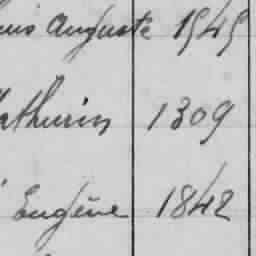 Auguste 1949
Mathurin 1309
Eugène 1842